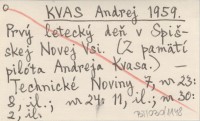 KVAS Andrej 1959.
Prvý letecký deň v Spiš-
skej Novej Vsi. (Z pamätí
pilota Andreja Kvasa.) —
Technické Noviny, 7, nr. 23:
8, il.; nr 24: 11, il.; nr 30:
2, il.